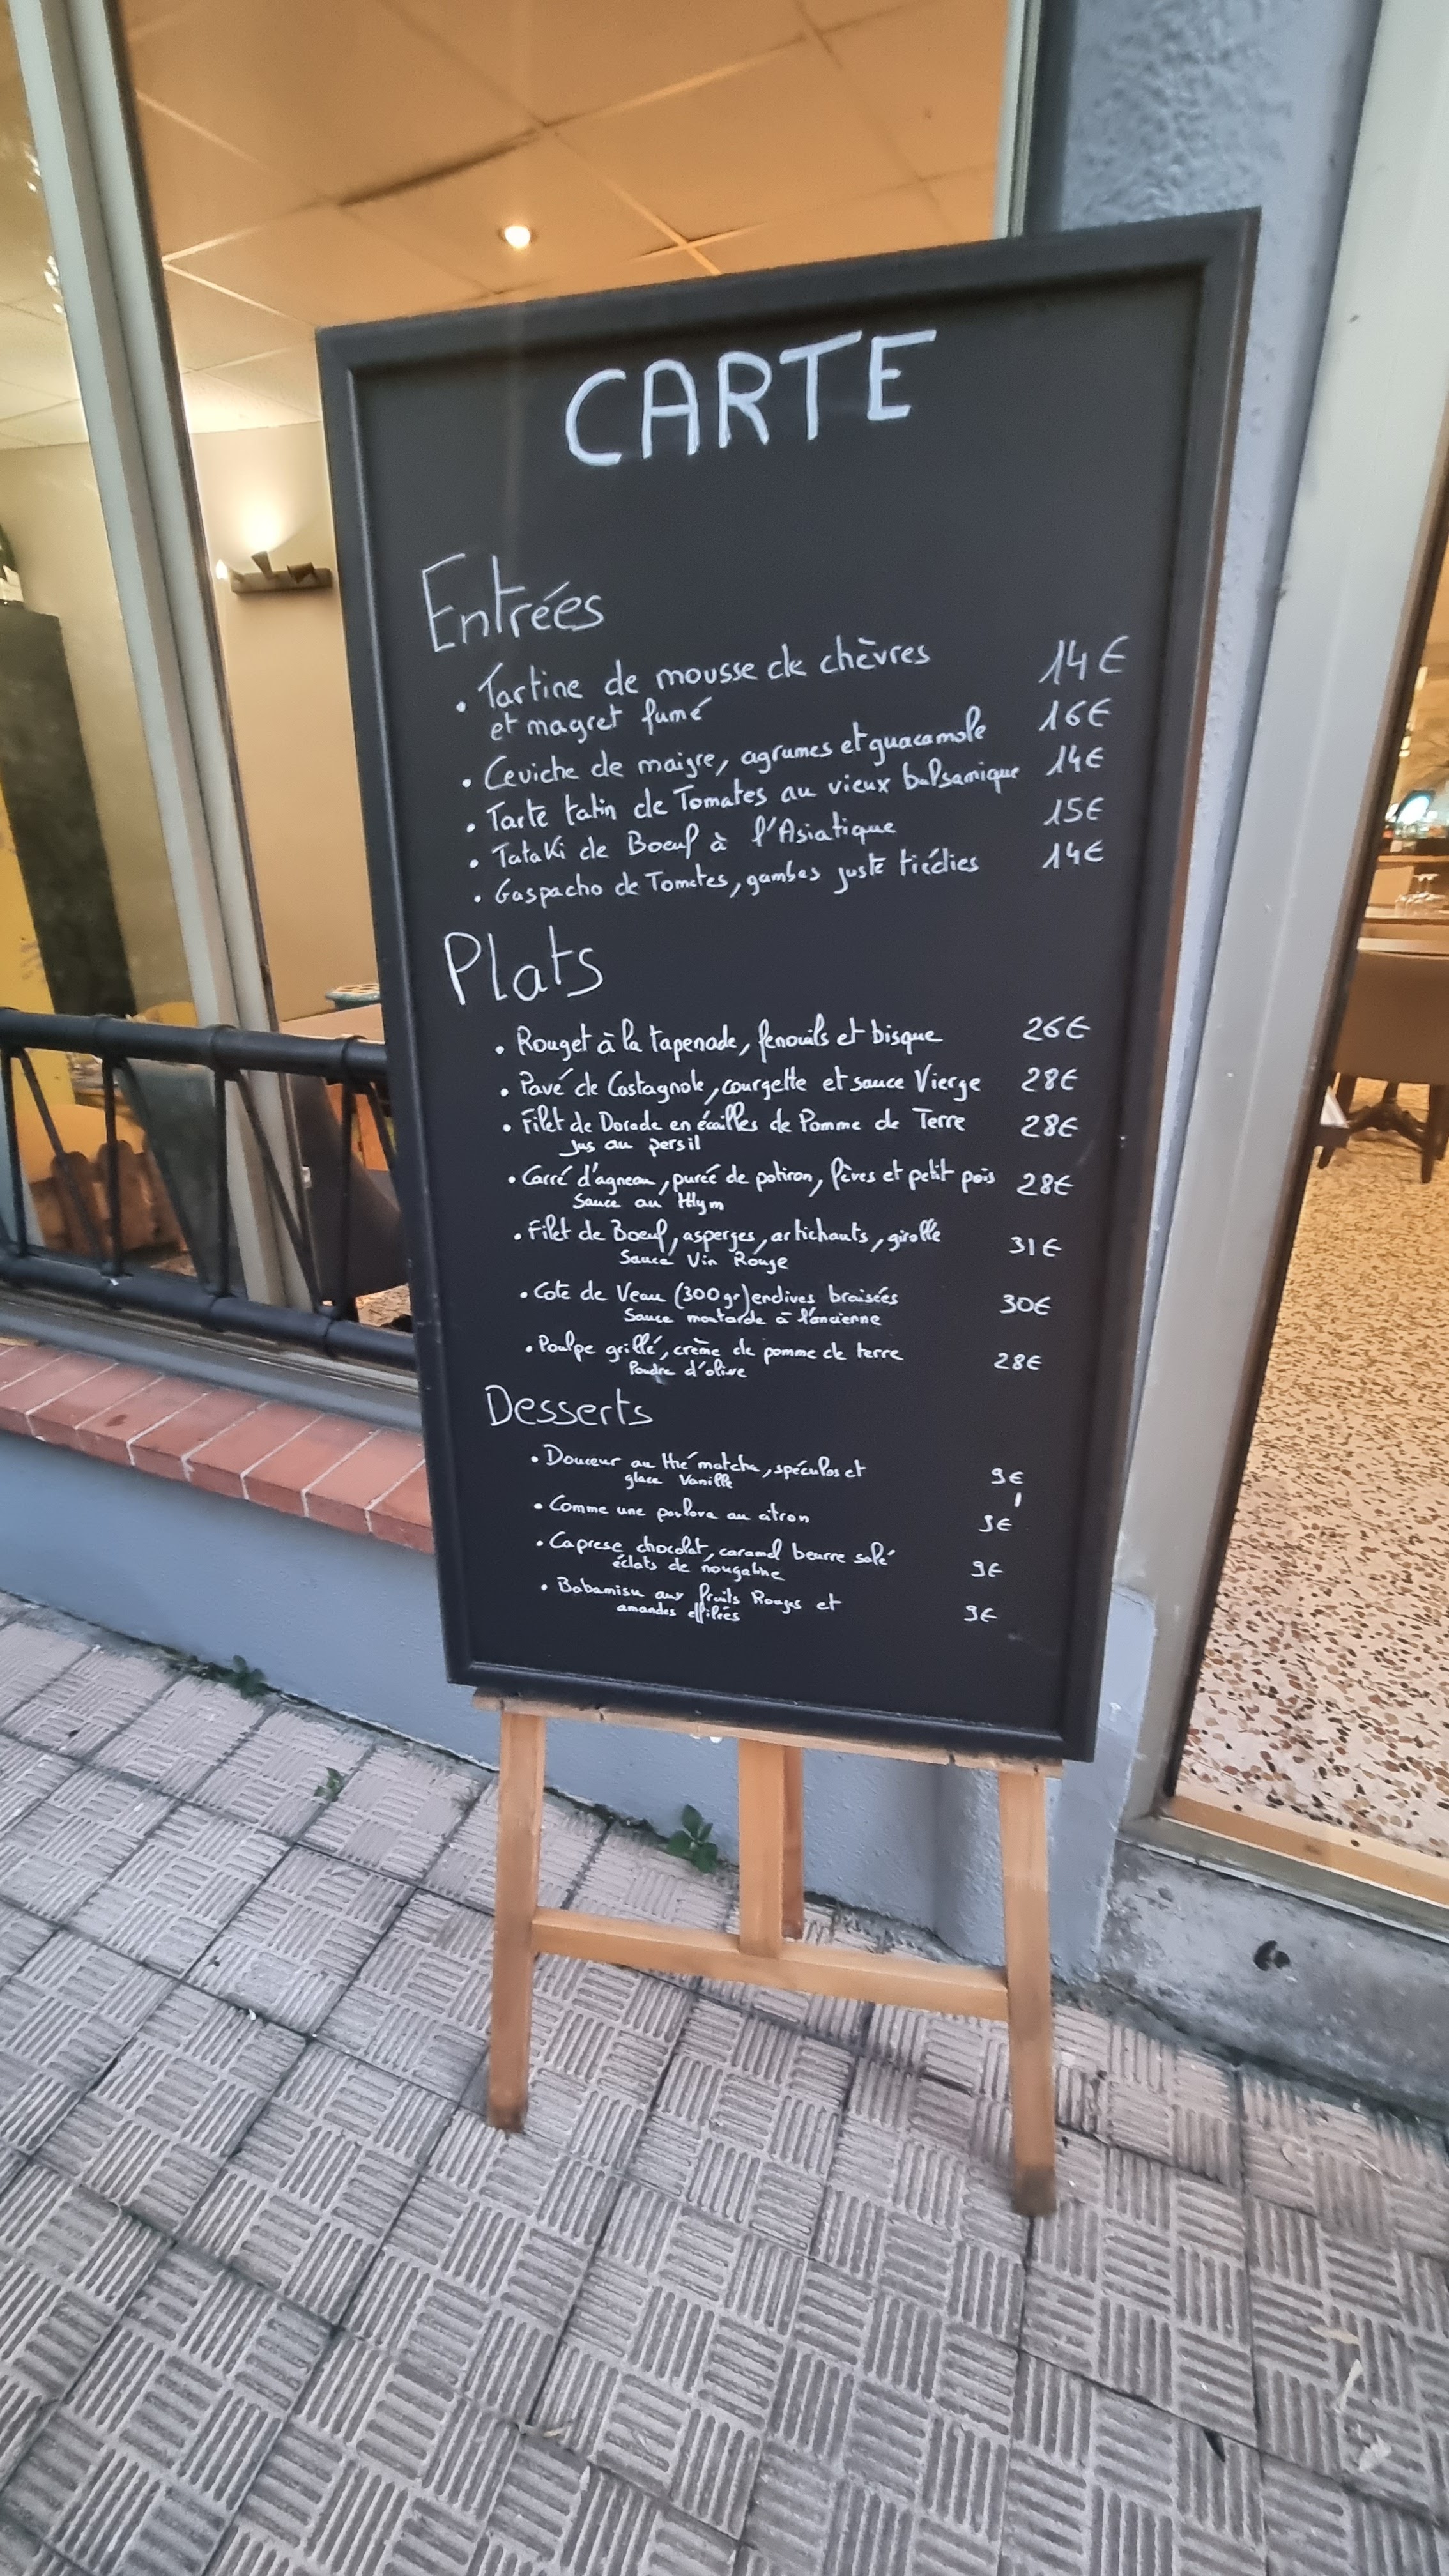 CARTE
Entrées
• Tartine de mousse de chèvres 14€
et magret fumé
• Ceviche de maigre, agrumes et guacamole 16€
• Tarte tatin de Tomates au vieux balsamique 14€
• Tataki de Boeuf à l'Asiatique 15€
• Gaspacho de Tomates, gambas juste tiédies 14€
Plats
• Rouget à la tapenade, fenouils et bisque 26€
• Pavé de Castagnole, courgette et sauce Vierge 28€
• Filet de Dorade en écailles de Pomme de Terre 28€
Jus au persil
• Carré d'agneau, purée de potiron, fèves et petit pois 28€
Sauce au thym
• Filet de Boeuf, asperges, artichauts, girolle 31€
Sauce Vin Rouge
• Cote de Veau (300gr) endives braisées 30€
Sauce moutarde à l'ancienne
• Poulpe grillé, crème de pomme de terre 28€
Poudre d'olive
Desserts
• Douceur au thé matcha, spéculos et 9€
glace Vanille
• Comme une pavlova au citron 9€
• Caprese chocolat, caramel beurre salé 9€
éclats de nougatine
• Babamisu aux fruits Rouges et 9€
amandes effilées